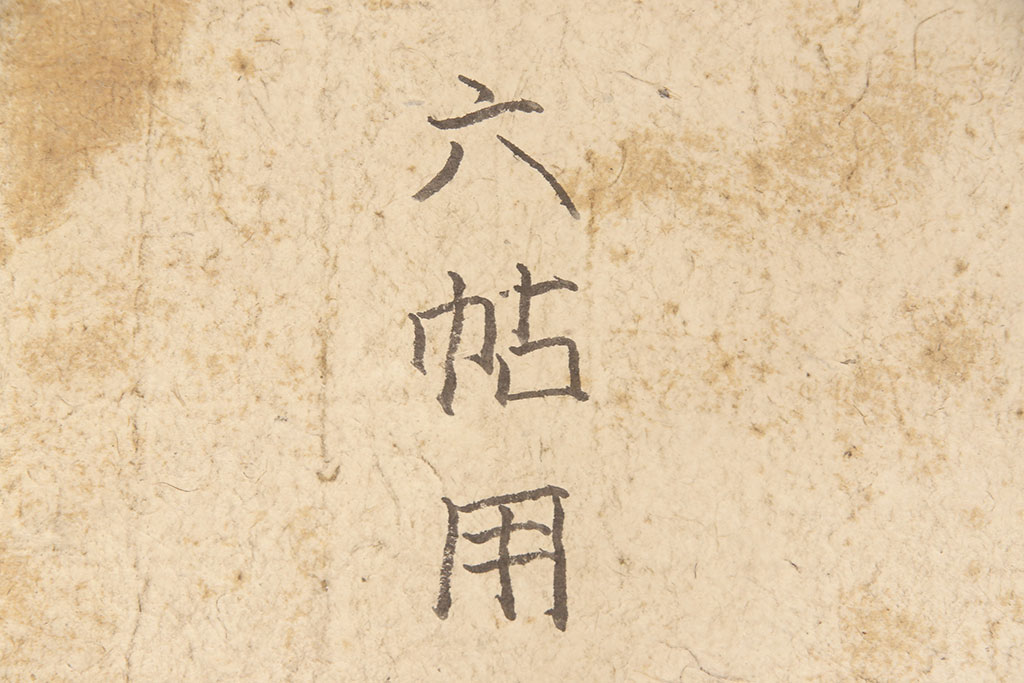 六帖用